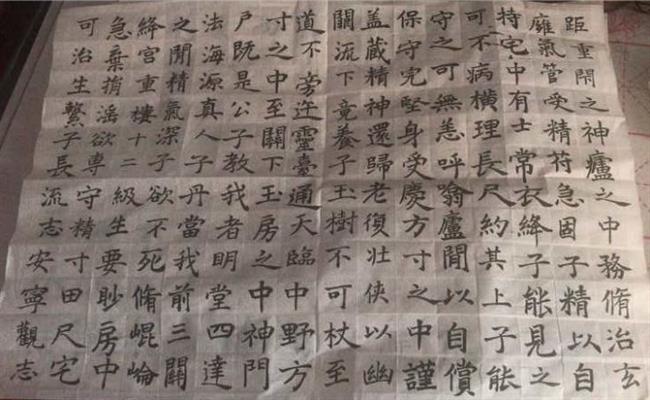 距重閉之神廬之中務脩治玄
廱氣管受精符急固子精以自
持宅中有士常衣絳子能見之
可不病橫理長尺約其上子能
守之可無恙呼翕廬閒以自償
保守完堅身受慶方寸之中謹
蓋藏精神還歸老復壯俠以幽
闕流下竟養子玉樹不可杖至
道不旁迕靈臺通天臨中野方
寸之中至關下玉房之中神門
户既是公子教我者明堂四達
法海源真人子丹當我前三關
之閒精氣深子欲不死脩崐崙
絳宮重樓十二級生要眇房中
急棄捐淫欲專守精寸田尺宅
可治生繫子長流志安寧觀志